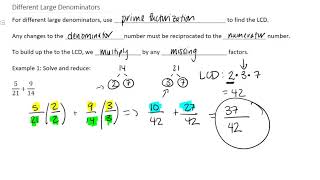 Different Large Denominators
For different large denominators, use prime factorization to find the LCD.
Any changes to the denominator number must be reciprocated to the numerator number.
To build up the to the LCD, we multiply by any missing factors.
Example 1: Solve and reduce.
5/21 + 9/14
14
2 7
21
3 7
LCD: 2·3·7
= 42
5/21 (2/2) + 9/14 (3/3) => 10/42 + 27/42 = 37/42